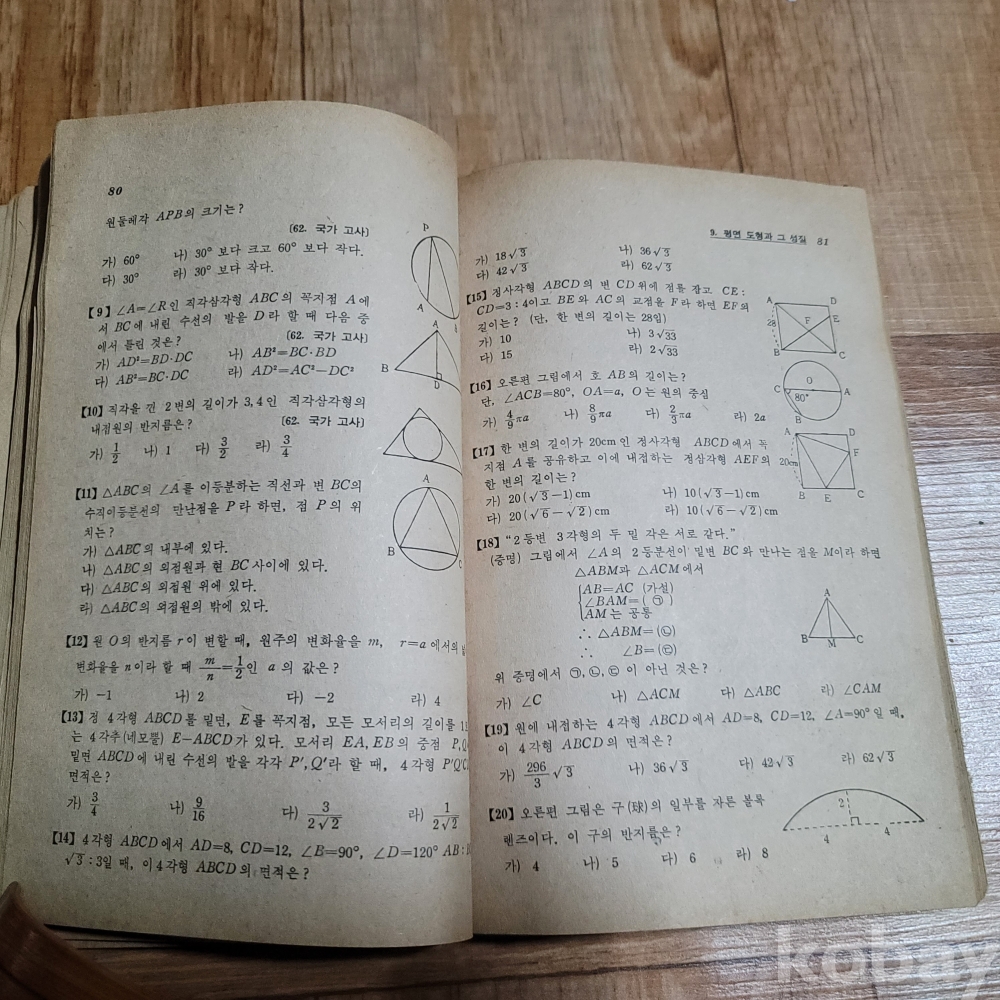 80
원둘레각 APB의 크기는?
〔62. 국가 고사〕
가) 60° 나) 30° 보다 크고 60° 보다 작다.
다) 30° 라) 30° 보다 작다.
【9】 ∠A=∠R인 직각삼각형 ABC의 꼭지점 A에
서 BC에 내린 수선의 발을 D라 할 때 다음 중
에서 틀린 것은? 〔62. 국가 고사〕
가) AD²=BD·DC 나) AB²=BC·BD
다) AB²=BC·DC 라) AD²=AC²−DC²
【10】 직각을 낀 2변의 길이가 3,4인 직각삼각형의
내접원의 반지름은? 〔62. 국가 고사〕
가) 1/2 나) 1 다) 3/2 라) 3/4
【11】 △ABC의 ∠A를 이등분하는 직선과 변 BC의
수직이등분선의 만난점을 P라 하면, 점 P의 위
치는?
가) △ABC의 내부에 있다.
나) △ABC의 외접원과 현 BC사이에 있다.
다) △ABC의 외접원 위에 있다.
라) △ABC의 외접원의 밖에 있다.
【12】 원 O의 반지름 r이 변할 때, 원주의 변화율을 m, r=a에서의
변화율을 n이라 할 때 m/n=1/2인 a의 값은?
가) −1 나) 2 다) −2 라) 4
【13】 정 4각형 ABCD를 밑면, E를 꼭지점, 모든 모서리의 길이를
는 4각추(네모뿔) E−ABCD가 있다. 모서리 EA, EB의 중점 P,
밑면 ABCD에 내린 수선의 발을 각각 P′,Q′라 할 때, 4각형
면적은?
가) 3/4 나) 9/16 다) 3/2√2 라) 1/2√2
【14】 4각형 ABCD에서 AD=8, CD=12, ∠B=90°, ∠D=120° AB:
√3:3일 때, 이4각형 ABCD의 면적은?
P
A
A
B
D
A
B
C
9. 평면 도형과 그 성질 81
가) 18√3 나) 36√3
다) 42√3 라) 62√3
【15】 정사각형 ABCD의 변 CD위에 점E를 잡고 CE:
CD=3:4이고 BE와 AC의 교점을 F라 하면 EF의
길이는? (단, 한 변의 길이는 28임)
가) 10 나) 3√33
다) 15 라) 2√33
A D
28 F E
B C
【16】 오른편 그림에서 호 AB의 길이는?
단, ∠ACB=80°, OA=a, O는 원의 중심
가) 4/9πa 나) 8/9πa 다) 2/3πa 라) 2a
O
C A
80°
B
【17】 한 변의 길이가 20cm인 정사각형 ABCD에서 꼭
지점 A를 공유하고 이에 내접하는 정삼각형 AEF의
한 변의 길이는?
가) 20(√3−1)cm 나) 10(√3−1)cm
다) 20(√6−√2)cm 라) 10(√6−√2)cm
A D
20cm F
B E C
【18】 “2등변 3각형의 두 밑 각은 서로 같다.”
(증명) 그림에서 ∠A의 2등분선이 밑변 BC와 만나는 점을 M이라 하면
△ABM과 △ACM에서
AB=AC (가설)
∠BAM=( ㉠ )
AM는 공통
∴ △ABM=(㉡)
∴ ∠B=(㉢)
A
B M C
위 증명에서 ㉠,㉡,㉢이 아닌 것은?
가) ∠C 나) △ACM 다) △ABC 라) ∠CAM
【19】 원에 내접하는 4각형 ABCD에서 AD=8, CD=12, ∠A=90°일 때,
이 4각형 ABCD의 면적은?
가) 296/3√3 나) 36√3 다) 42√3 라) 62√3
【20】 오른편 그림은 구(球)의 일부를 자른 볼록
렌즈이다. 이 구의 반지름은?
가) 4 나) 5 다) 6 라) 8
2
4
4
kobay